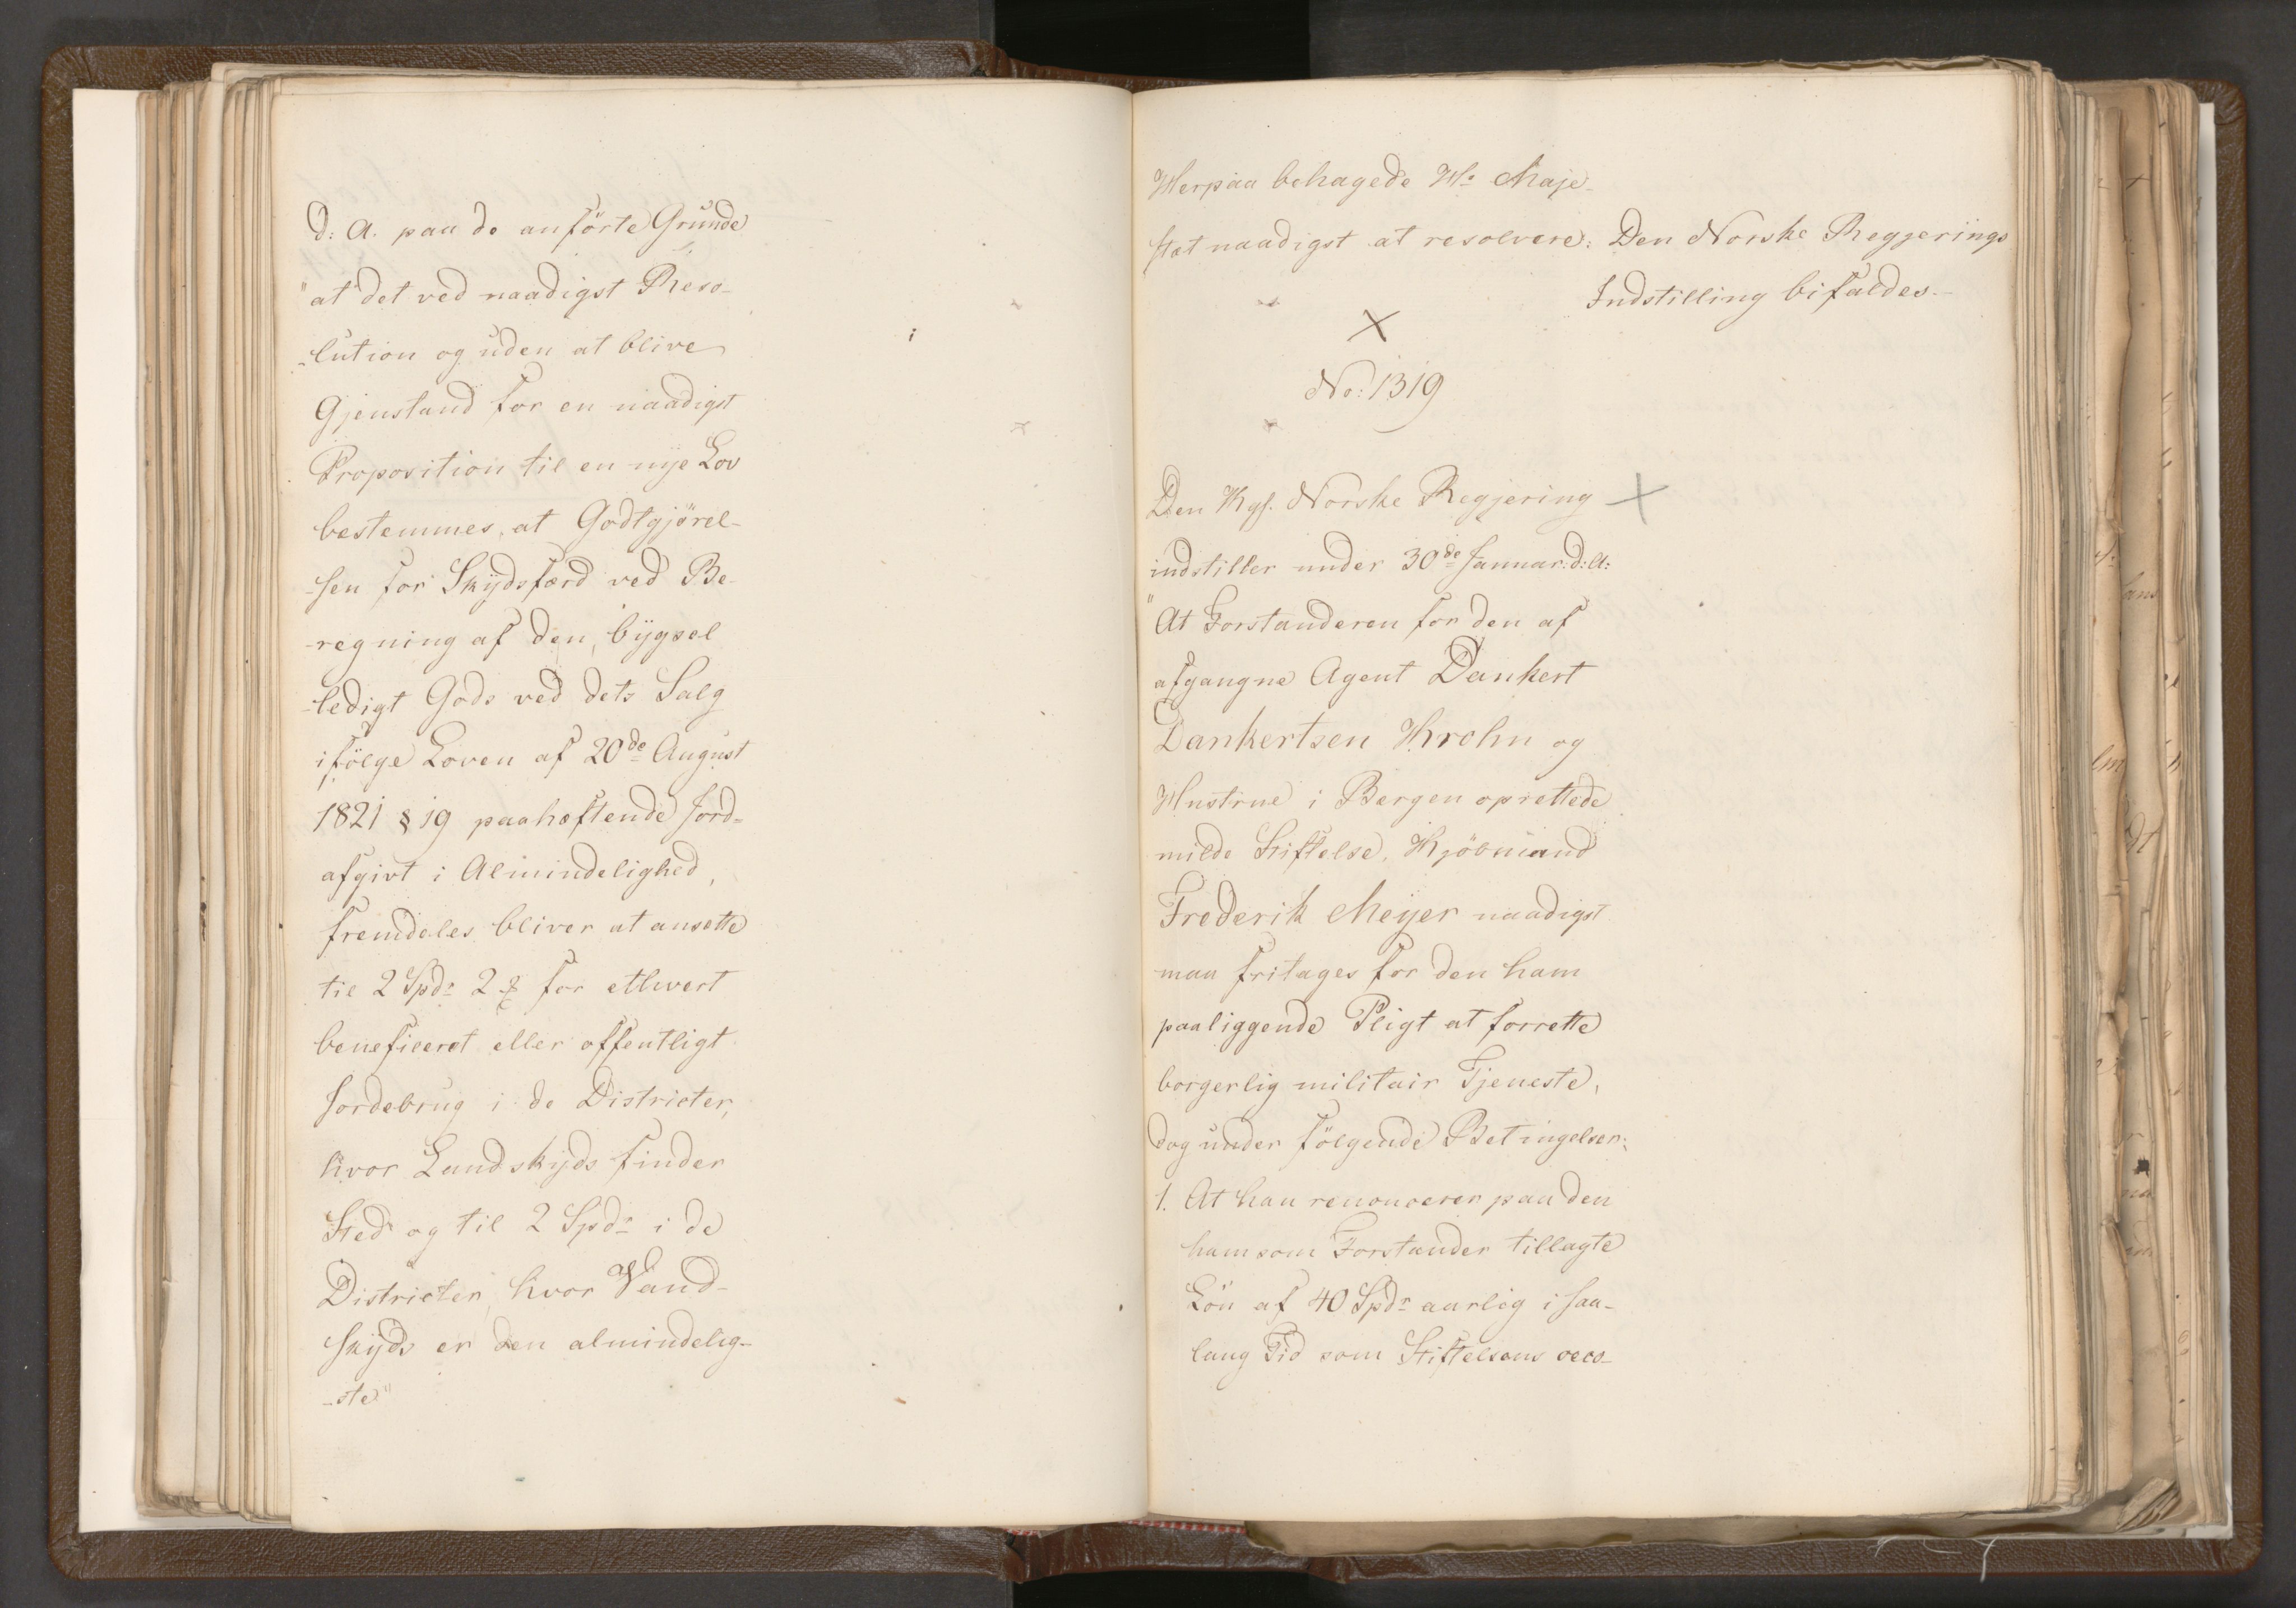 d: A. paa de anförte Grunde
"at det ved naadigst Reso-
-lution og uden at blive
Gjenstand for en naadigst
Proposition til en nye Lov
bestemmes, at Godtgjörel-
-sen for Skydsfærd ved Be-
-regning af den, bygsel
-ledigt Gods ved dets Salg
ifölge Loven af 20de August
1821 § 19 paaheftende Jord-
afgivt i Almindelighed,
fremdeles bliver at ansætte
til 2 Spdr 2 ₰ for ethvert
beneficeret eller offentligt
Jordebrug i de Districter,
hvor Landskyds finder
Sted og til 2 Spdr i de
Districter, hvor Vand-
skyds er den almindelig-
-ste"
Herpaa behagede Hs Maje-
stet naadigst at resolvere: Den Norske Regjerings
Indstilling bifaldes.-
No: 1319
Den Kgl. Norske Regjering
indstiller under 30de Januar: d: A:
"At Forstanderen for den af
afgangne Agent Dankert
Dankertsen Krohn og
Hustrue i Bergen oprettede
milde Stiftelse, Kjöbmand
Frederik Meyer naadigst
maa fritages for den ham
paaliggende Pligt at forrette
borgerlig militair Tjeneste,
dog under fölgende Betingelser:
1. At han renoncerer paa den
ham som Forstander tillagte
Lön af 40 Spdr aarlig i saa-
lang Tid som Stiftelsens oeco-